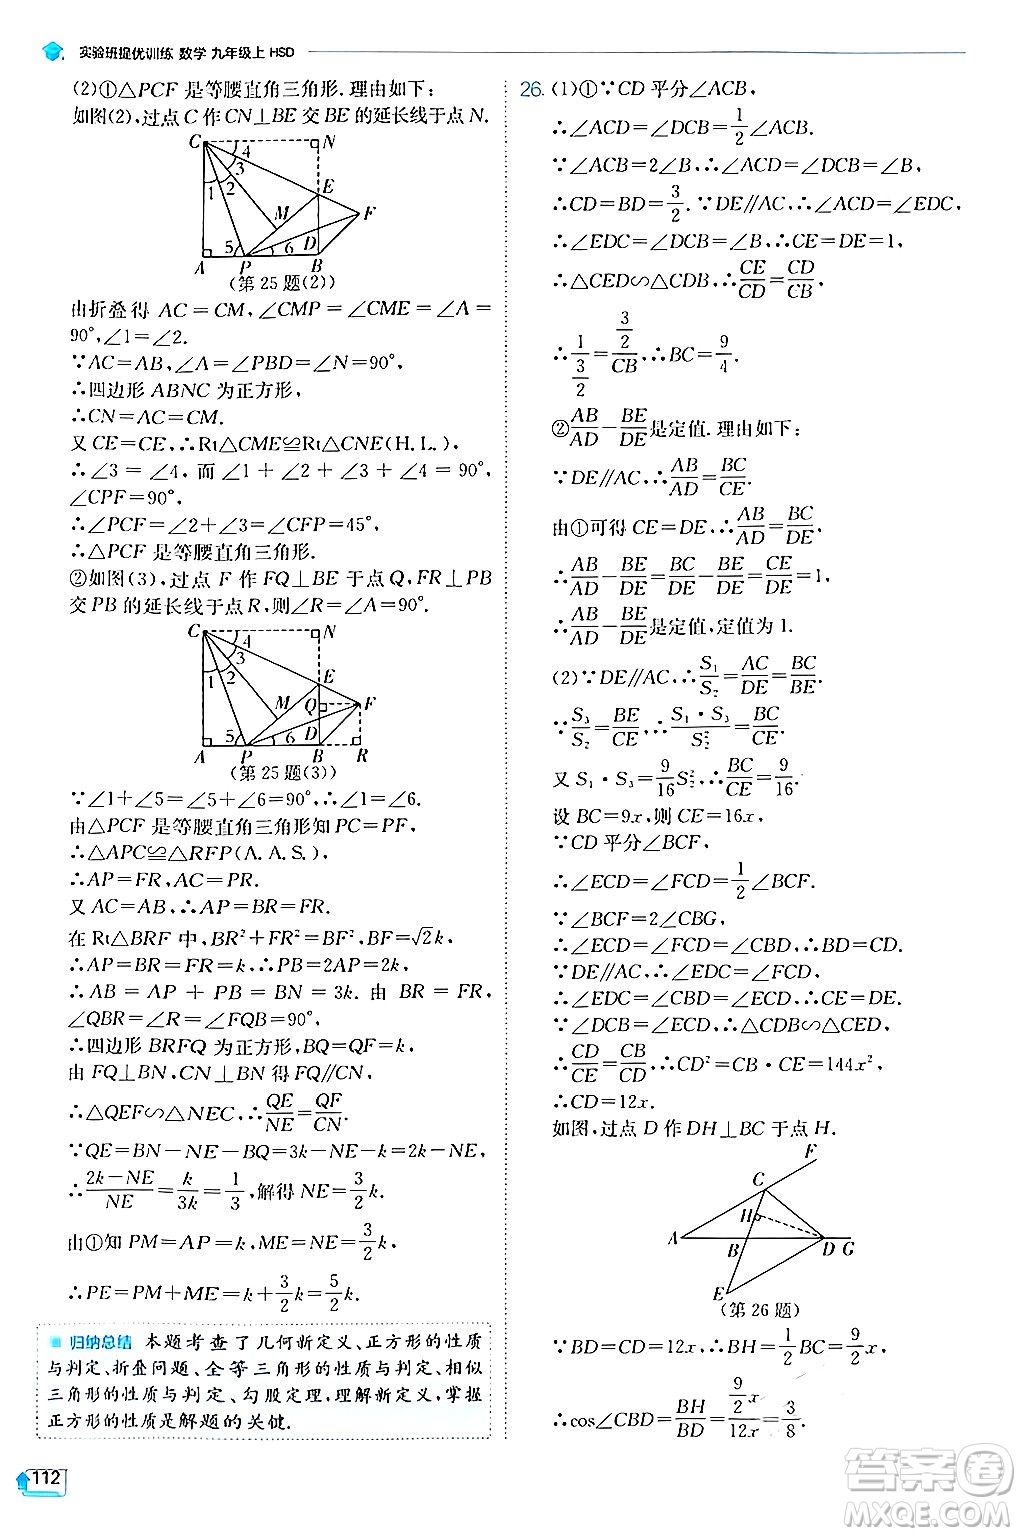 实验班提优训练 数学 九年级上 HSD
(2)①△PCF是等腰直角三角形.理由如下:
如图(2),过点C作CN⊥BE交BE的延长线于点N.
C N 4 3 1 2 E M F 5 6 D A P B
(第25题(2))
由折叠得 AC=CM,∠CMP=∠CME=∠A=
90°,∠1=∠2.
∵AC=AB,∠A=∠PBD=∠N=90°,
∴四边形ABNC为正方形,
∴CN=AC=CM.
又CE=CE,∴Rt△CME≌Rt△CNE(H.L.),
∴∠3=∠4,而∠1+∠2+∠3+∠4=90°,
∠CPF=90°,
∴∠PCF=∠2+∠3=∠CFP=45°,
∴△PCF是等腰直角三角形.
②如图(3),过点F作FQ⊥BE于点Q,FR⊥PB
交PB的延长线于点R,则∠R=∠A=90°.
C N 4 3 1 2 E M Q F 5 6 D A P B R
(第25题(3))
∵∠1+∠5=∠5+∠6=90°,∴∠1=∠6.
由△PCF是等腰直角三角形知PC=PF,
∴△APC≌△RFP(A.A.S.),
∴AP=FR,AC=PR.
又AC=AB,∴AP=BR=FR.
在Rt△BRF中,BR²+FR²=BF²,BF=√2k,
∴AP=BR=FR=k,∴PB=2AP=2k,
∴AB=AP+PB=BN=3k.由BR=FR,
∠QBR=∠R=∠FQB=90°,
∴四边形BRFQ为正方形,BQ=QF=k,
由FQ⊥BN,CN⊥BN得FQ∥CN,
∴△QEF∽△NEC,∴QE/NE=QF/CN.
∵QE=BN−NE−BQ=3k−NE−k=2k−NE,
∴(2k−NE)/NE=k/3k=1/3,解得NE=3/2k,
由①知PM=AP=k,ME=NE=3/2k,
∴PE=PM+ME=k+3/2k=5/2k.
归纳总结 本题考查了几何新定义、正方形的性质
与判定、折叠问题、全等三角形的性质与判定、相似
三角形的性质与判定、勾股定理,理解新定义,掌握
正方形的性质是解题的关键.
112
26.(1)①∵CD平分∠ACB,
∴∠ACD=∠DCB=1/2∠ACB.
∵∠ACB=2∠B,∴∠ACD=∠DCB=∠B,
∴CD=BD=3/2.∵DE∥AC,∴∠ACD=∠EDC,
∴∠EDC=∠DCB=∠B,∴CE=DE=1,
∴△CED∽△CDB,∴CE/CD=CD/CB,
∴1/(3/2)=(3/2)/CB,∴BC=9/4.
②AB/AD−BE/DE是定值.理由如下:
∵DE∥AC,∴AB/AD=BC/CE.
由①可得CE=DE,∴AB/AD=BC/DE,
∴AB/AD−BE/DE=BC/DE−BE/DE=CE/DE=1,
∴AB/AD−BE/DE是定值,定值为1.
(2)∵DE∥AC,∴S₁/S₂=AC/DE=BC/BE.
∵S₃/S₂=BE/CE,∴S₁·S₃/S₂²=BC/CE.
又S₁·S₃=9/16S₂²,∴BC/CE=9/16.
设BC=9x,则CE=16x,
∵CD平分∠BCF,
∴∠ECD=∠FCD=1/2∠BCF.
∵∠BCF=2∠CBG,
∴∠ECD=∠FCD=∠CBD,∴BD=CD.
∵DE∥AC,∴∠EDC=∠FCD,
∴∠EDC=∠CBD=∠ECD,∴CE=DE.
∵∠DCB=∠ECD,∴△CDB∽△CED,
∴CD/CE=CB/CD,∴CD²=CB·CE=144x²,
∴CD=12x.
如图,过点D作DH⊥BC于点H.
F C H A B D G E
(第26题)
∵BD=CD=12x,∴BH=1/2BC=9/2x,
∴cos∠CBD=BH/BD=(9/2x)/12x=3/8.
答案圈
MXQE.COM